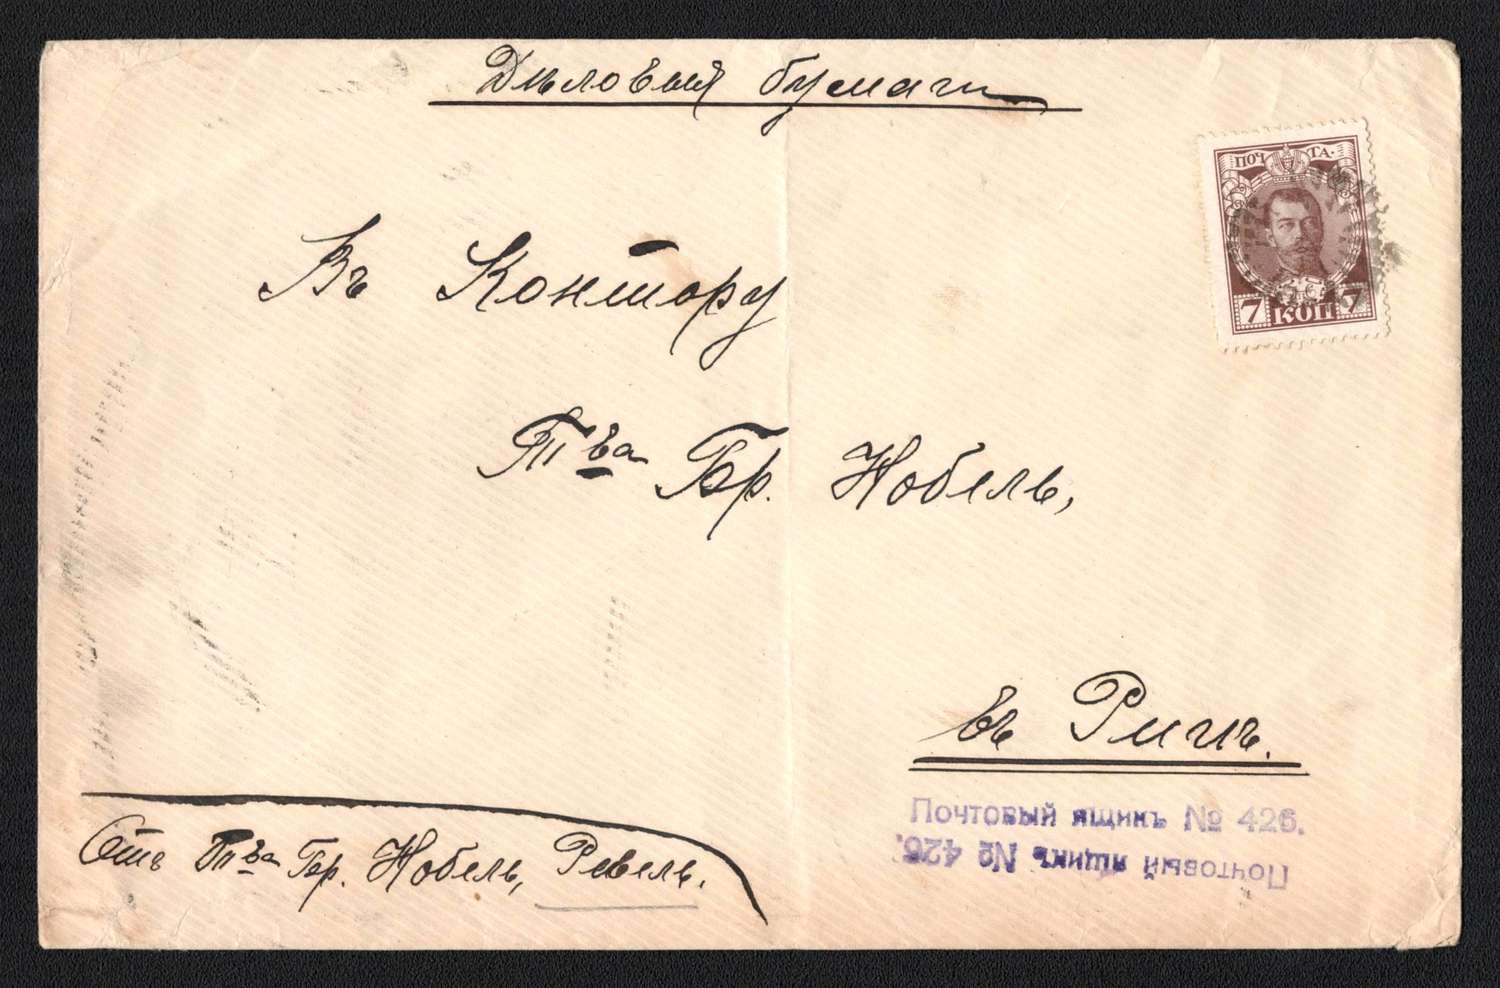 Дѣловыя бумаги
ПОЧТА.
7 КОП 7
Въ Контору
Т-ва Бр. Нобель,
въ Ригѣ.
Почтовый ящикъ № 426.
Почтовый ящикъ № 426.
Отъ Т-ва Бр. Нобель, Ревель.